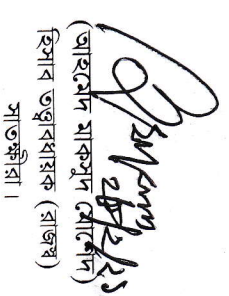 (আহমেদ মাকসুদ হোসেন)
হিসাব তত্ত্বাবধায়ক (রাজস্ব)
সাতক্ষীরা।